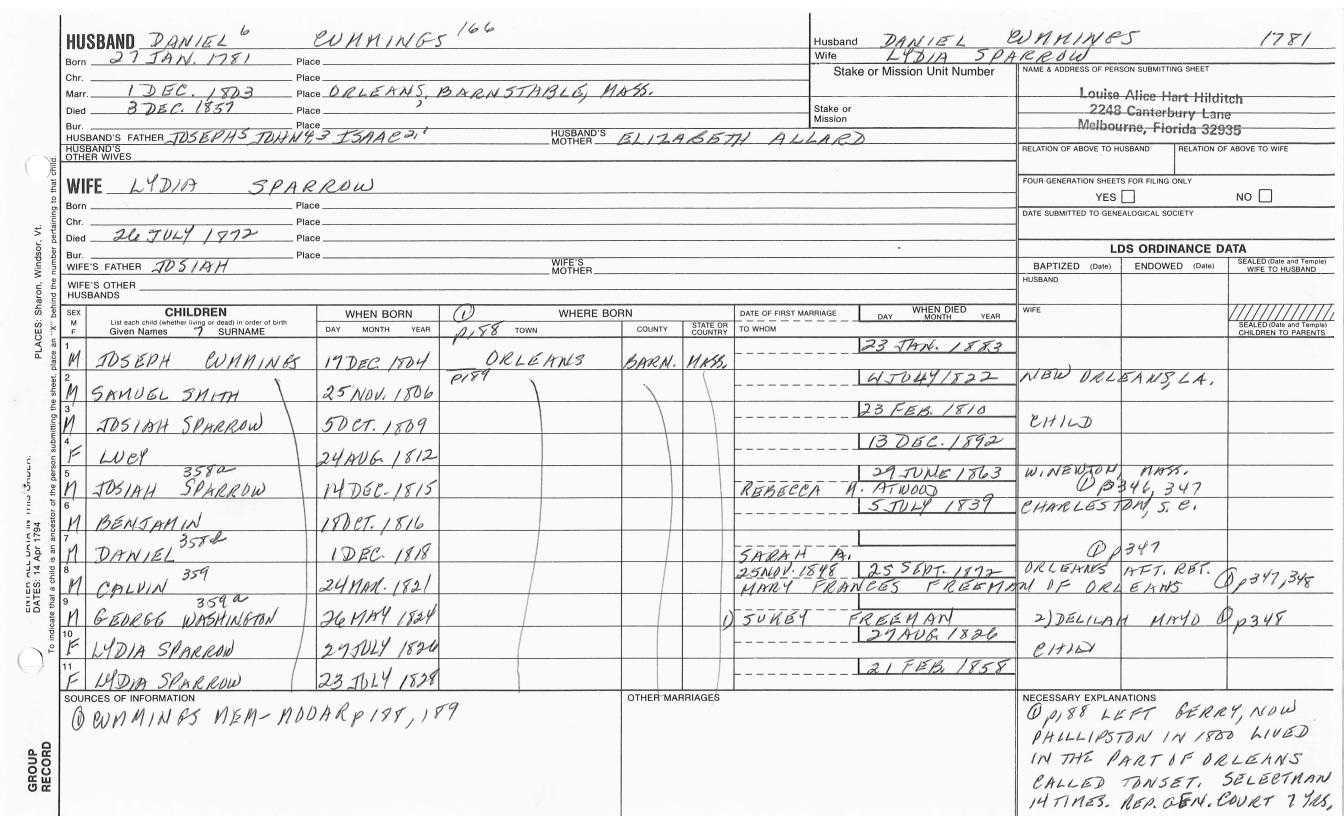 HUSBAND DANIEL 6 CUMMINGS 166
Born 27 JAN. 1781 Place
Chr. Place
Marr. 1 DEC. 1803 Place ORLEANS, BARNSTABLE, MASS.
Died 3 DEC. 1857 Place
Bur. Place
HUSBAND'S FATHER JOSEPH5 JOHN4,3 ISAAC2,1 HUSBAND'S MOTHER ELIZABETH ALLARD
HUSBAND'S OTHER WIVES
WIFE LYDIA SPARROW
Born Place
Chr. Place
Died 26 JULY 1872 Place
Bur. Place
WIFE'S FATHER JOSIAH WIFE'S MOTHER
WIFE'S OTHER HUSBANDS
Husband DANIEL CUMMINGS 1781
Wife LYDIA SPARROW
Stake or Mission Unit Number
Stake or Mission
NAME & ADDRESS OF PERSON SUBMITTING SHEET
Louise Alice Hart Hilditch
2248 Canterbury Lane
Melbourne, Florida 32935
RELATION OF ABOVE TO HUSBAND RELATION OF ABOVE TO WIFE
FOUR GENERATION SHEETS FOR FILING ONLY
YES NO
DATE SUBMITTED TO GENEALOGICAL SOCIETY
LDS ORDINANCE DATA
BAPTIZED (Date) ENDOWED (Date) SEALED (Date and Temple) WIFE TO HUSBAND
HUSBAND
WIFE
SEALED (Date and Temple) CHILDREN TO PARENTS
SEX M F CHILDREN WHEN BORN ① WHERE BORN DATE OF FIRST MARRIAGE WHEN DIED
List each child (whether living or dead) in order of birth
Given Names 7 SURNAME DAY MONTH YEAR p.188 TOWN COUNTY STATE OR COUNTRY TO WHOM DAY MONTH YEAR
1 M JOSEPH CUMMINGS 17 DEC. 1804 ORLEANS BARN. MASS. 23 JAN. 1883
p.189
2 M SAMUEL SMITH 25 NOV. 1806 1822 NEW ORLEANS, LA.
3 M JOSIAH SPARROW 5 OCT. 1809 23 FEB. 1810 CHILD
4 F LUCY 24 AUG. 1812 13 DEC. 1892
5 M JOSIAH SPARROW 358a 14 DEC. 1815 REBECCA M. ATWOOD 29 JUNE 1863 W. NEWTON, MASS. ① p346, 347
6 M BENJAMIN 18 OCT. 1816 5 JULY 1839 CHARLESTON, S.C.
7 M DANIEL 358d 1 DEC. 1818 SARAH A. ① p347
8 M CALVIN 359 24 MAR. 1821 25 NOV. 1848 25 SEPT. 1872 ORLEANS AFT. RET.
MARY FRANCES FREEMAN OF ORLEANS ① p347,348
9 M GEORGE WASHINGTON 359a 26 MAY 1824 1) SUKEY FREEMAN 2) DELILAH MAYO ① p348
10 F LYDIA SPARROW 27 JULY 1826 27 AUG 1826 CHILD
11 F LYDIA SPARROW 23 JULY 1828 21 FEB. 1858
SOURCES OF INFORMATION
① CUMMINGS MEM- MOOAR p 188, 189
OTHER MARRIAGES
NECESSARY EXPLANATIONS
① p.188 LEFT GERRY, NOW
PHILLIPSTON IN 1800 LIVED
IN THE PART OF ORLEANS
CALLED TONSET. SELECTMAN
14 TIMES. REP. GEN. COURT 7 YRS,
PLACES: Sharon, Windsor, Vt.
DATES: 14 Apr 1794
To indicate that a child is an ancestor of the person submitting the sheet, place an "X" behind the number pertaining to that child.
GROUP RECORD